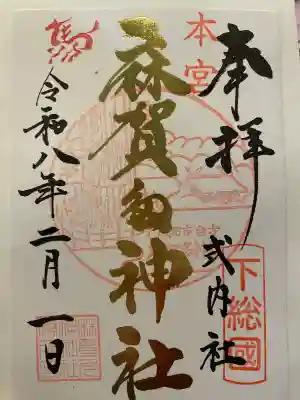 奉拝
式内社
下総國
本宮
麻賀多神社
令和八年二月一日